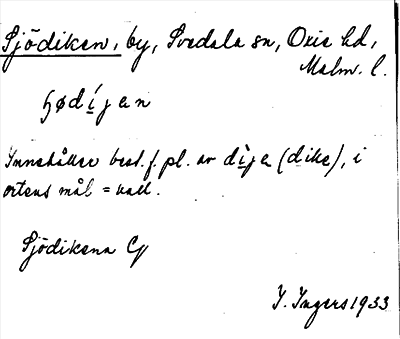 Sjödiken, by, Svedala sn, Oxie hd,
Malm. l.
ɧødíjen
Innehåller best. f. pl. av díje (dike), i
ortens mål = vall.
Sjödikena Cy
I. Ingers 1933